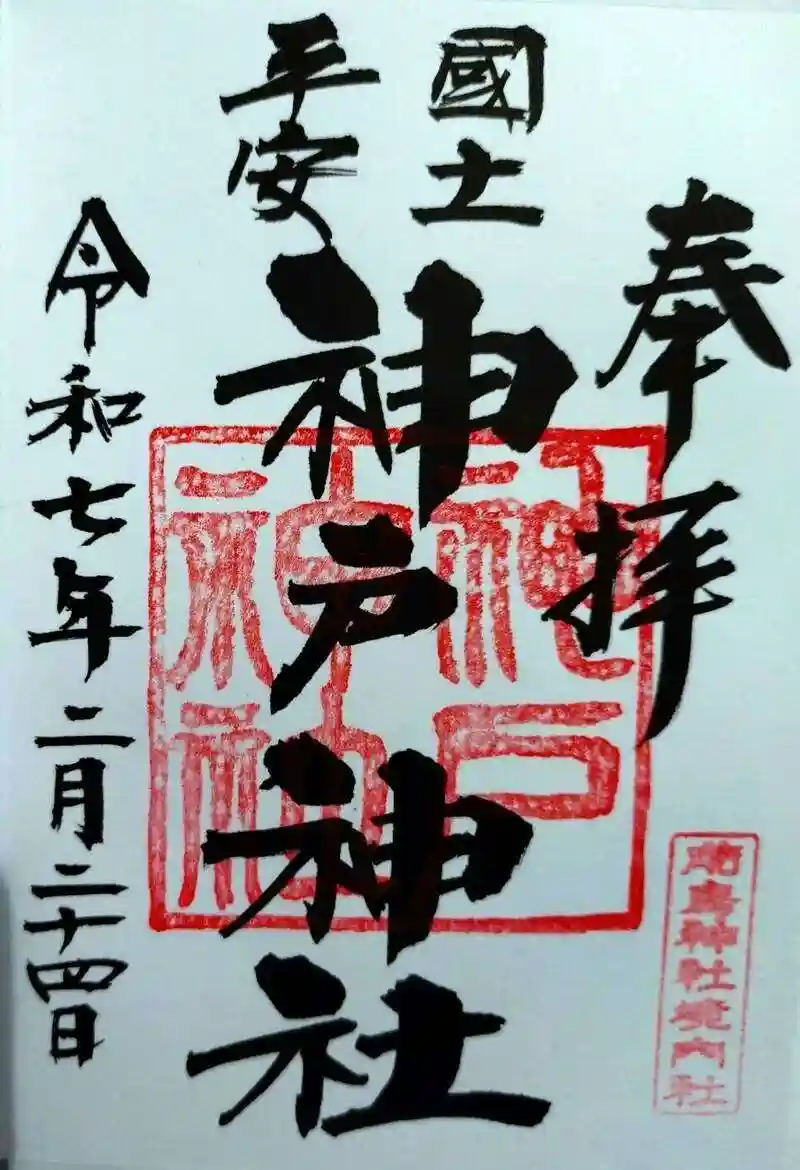 奉拝
國土
平安
神戸神社
神戸神社
前鳥神社境内社
令和七年二月二十四日